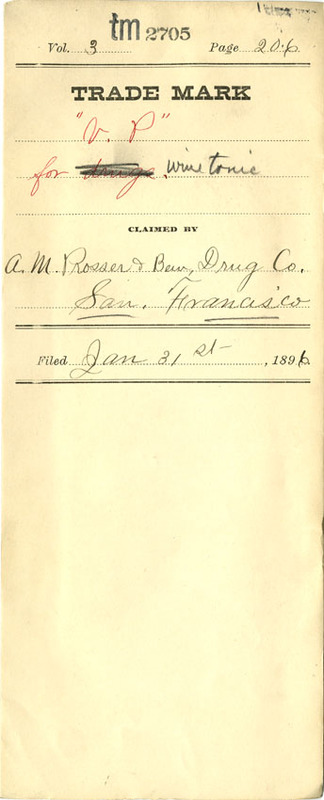 tm 2705
Vol. 3 Page 206
TRADE MARK
"V. P"
for drugs. wine tonic
CLAIMED BY
A. M. Rosser & Drug Co.
San. Francisco
Filed Jan 31st , 1896